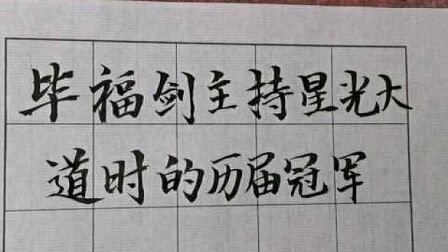 毕福剑主持星光大
道时的历届冠军